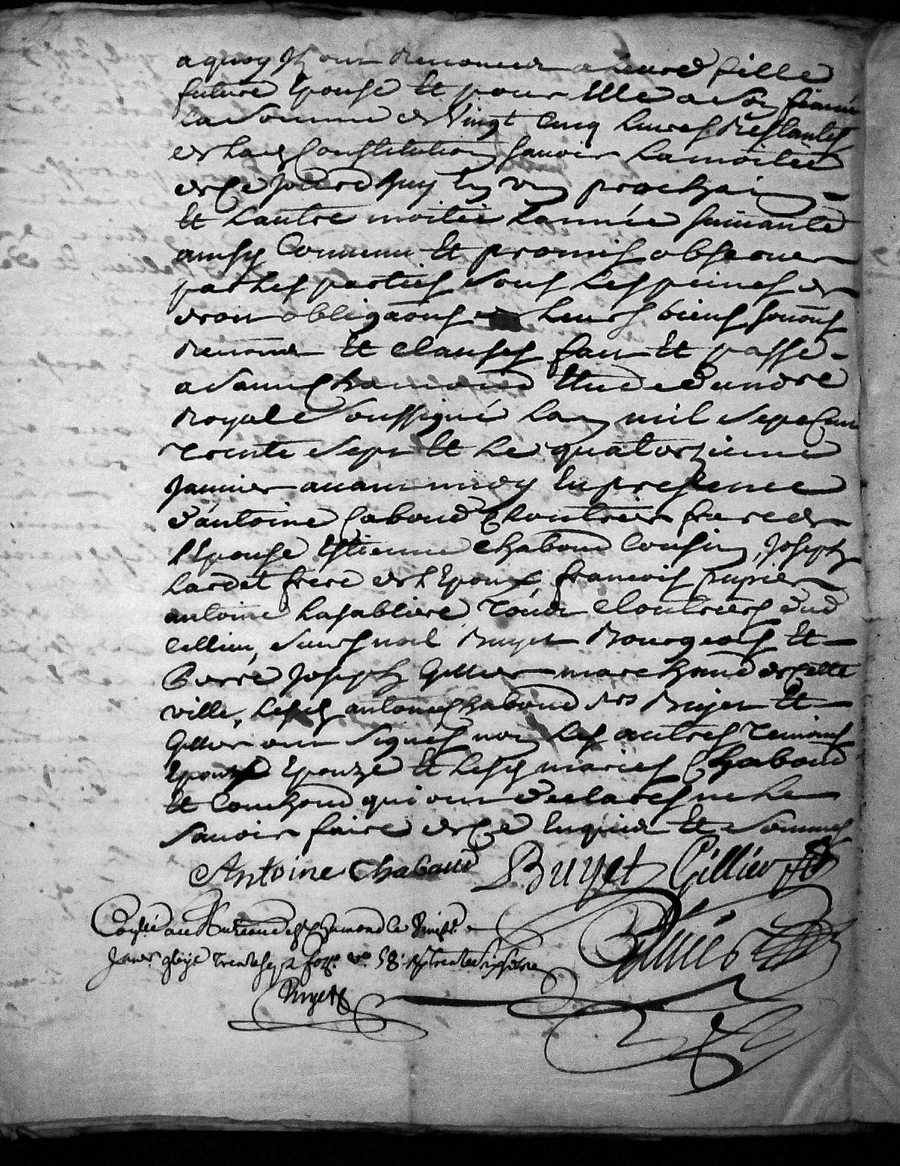 a quoy ils ont renoncer a leurd fille
future Epouse et pour Elle a son
La somme de vingt cinq livres restantes
de lad Constitution scavoir la moitiée
de ce jourdhuy en un prochain
et l'autre moitiée l'année suivante
ainsy Convenu et promis observer
par les parties sous les peines de
droit obligaons de leurs biens soumis
renon et clauses fait et passé
a saint chamond Etude du nore
Royal soussigné l'an mil sept Cent
trente sept et le quatorzieme
Janvier avant midy En presence
d'antoine Chaboud Cloutrier frere de
l'Epouse Estienne Chaboud Cousin, Joseph
Lardet frere de l'Epoux francois rupier
antoine Lasabliere Cloutriers dud
Cellieu, sieurs noel Bruyet Bourgeois et
Pierre Joseph Gillier marchand de cette
ville, Lesqls antoine Chaboud srs Bruyet et
Gillier ont signés non les autres temoins
Epoux Epouze et lesds mariés Chaboud
et qui ont declares ne le
savoir faire de ce Enquis et sommés
Antoine Chaboud Bruyet Gillier
Conlé au Bureau de st Chamond le vingt
Janer trente sept
Bruyet